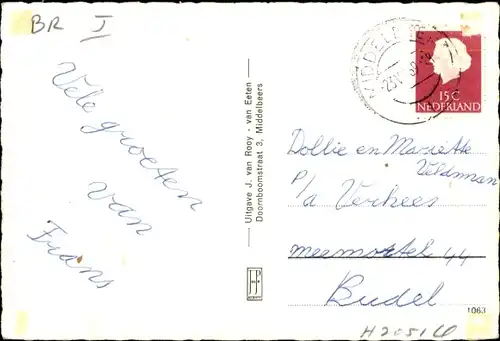 BR I
Vele groeten
van
Frans
Uitgave J. van Rooy - van Eeten
Doornboomstraat 3, Middelbeers
15 C
NEDERLAND
Dollie en Mariette
Veldman
P/a Verhees
meemortel 44
Budel
1063